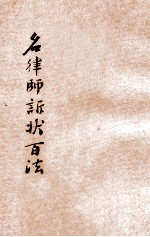 名律師訴狀百法